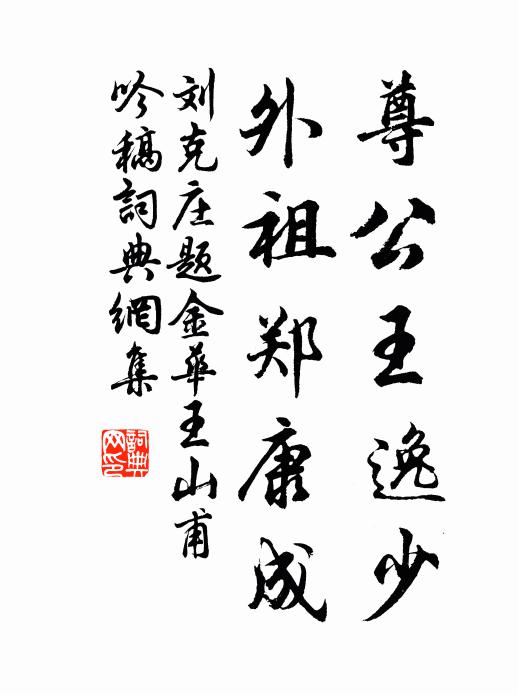 尊公王逸少
外祖郑康成
刘克庄题金华王山甫
吟稿詞典網集
詞典网印